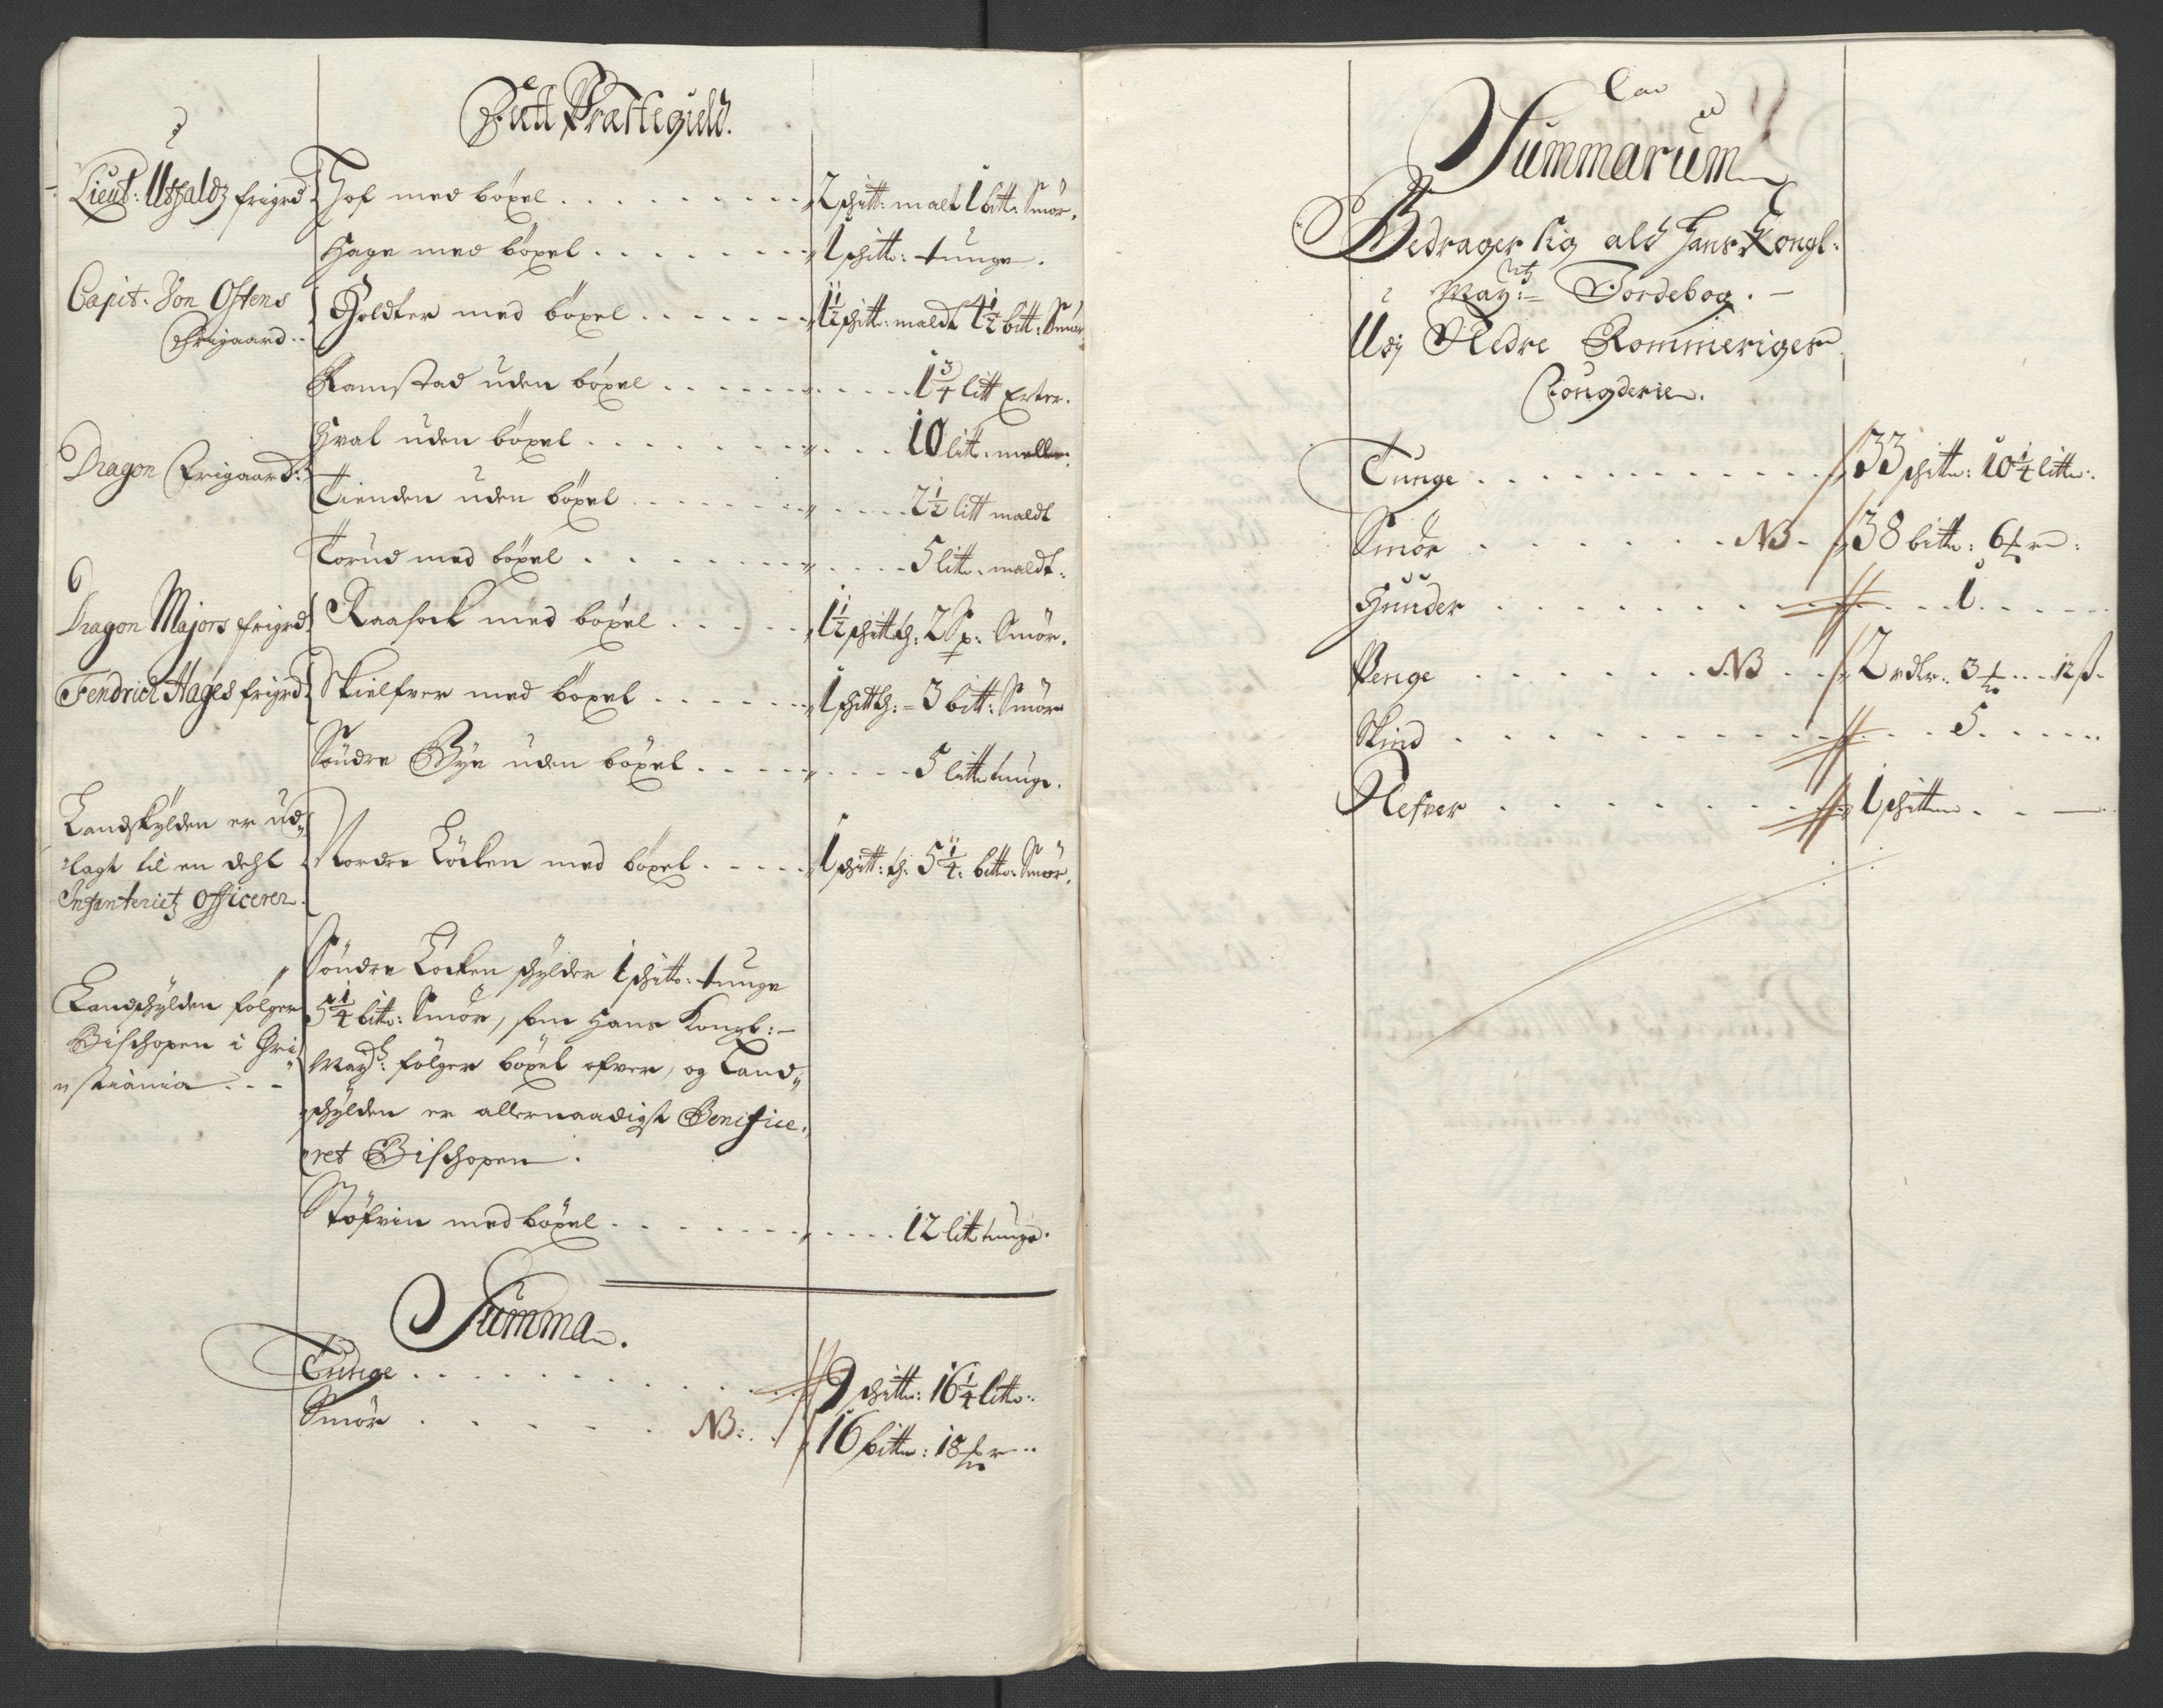 Fett Præstegield.
Lieut: Utfaldz frigrd Hof med böxel . . . . . . . . . 2 schitt: malt 1 bitt: Smör.
Hage med böxel . . . . . . . 1 schitt: tunge.
Capit: Von Ostens Frigaard . . Holdter med böxel . . . . . . 1½ schitt: maldt 4½ bitt: Smör
Ramstad uden böxel . . . . . . . . . . 1¾ litt Erter.
Hval uden böxel . . . . . . . . . . 10 litt: mell
Dragon Frigaard: Tienden uden böxel . . . . . . . . . 2½ litt maldt
Torud med böxel . . . . . . . . . . 5 litt: maldt:
Dragon Majors frigrd Raafock med böxel . . . . . 1½ schitt th: 2 Sp: Smör.
Fendrich Hages frigrd Skielfver med böxel . . . . . . 1 schitt th: 3 bitt: Smör
Söndre Bye uden böxel . . . . . . . . 5 litt tunge.
Landskylden er ud
lagt til en dehl
Infanterietz Officerer.
Nordre Löcken med böxel . . . . . 1 schitt: th: 5¼ bitt: Smör.
Landschylden fölger
Bischopen i Chri
stiania . . .
Söndre Löcken schylder 1 schitt: tunge
5¼ bitt: Smör, som Hans Kongl:
Mayts: fölger böxel ofver, og Land
schylden er allernaadigst Benefice
ret Bischopen.
Stöfrin med böxel . . . . . . . . . . . 12 litt tunge.
Summa.
Tunge . . . . . . . . . . . 9 schitt: 16¼ litt:
Smör . . . . . NB: . 16 bitt: 18
Summarum
Bedrager sig all Hans Kongl:
Maytz: Jordebog.
Udj Nedre Rommeriges
Fougderie.
Tunge . . . . . . . . . . . 33 schitt: 10¼ litt:
Smör . . . . . . NB . 38 bitt: 6
Huuder . . . . . . . . . . . 1 . . . .
Penge . . . . . . NB . . 2 rdlr: 3 . . . 12 ß.
Skind . . . . . . . . . . . . 5 . . . . .
Nefver . . . . . . . . 1 schitt . . .